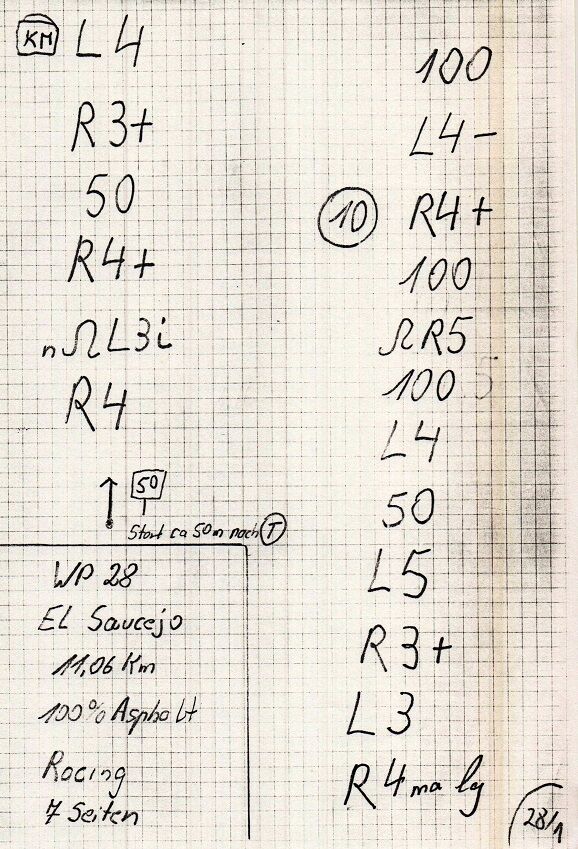 KM L4
R3+
50
R4+
n Ω L3i
R4
50
Start ca 50m nach T
WP 28
EL Saucejo
11,06 Km
100% Asphalt
Racing
7 Seiten
100
L4-
10 R4+
100
Ω R5
100
L4
50
L5
R3+
L3
R4 ma lg
28/1